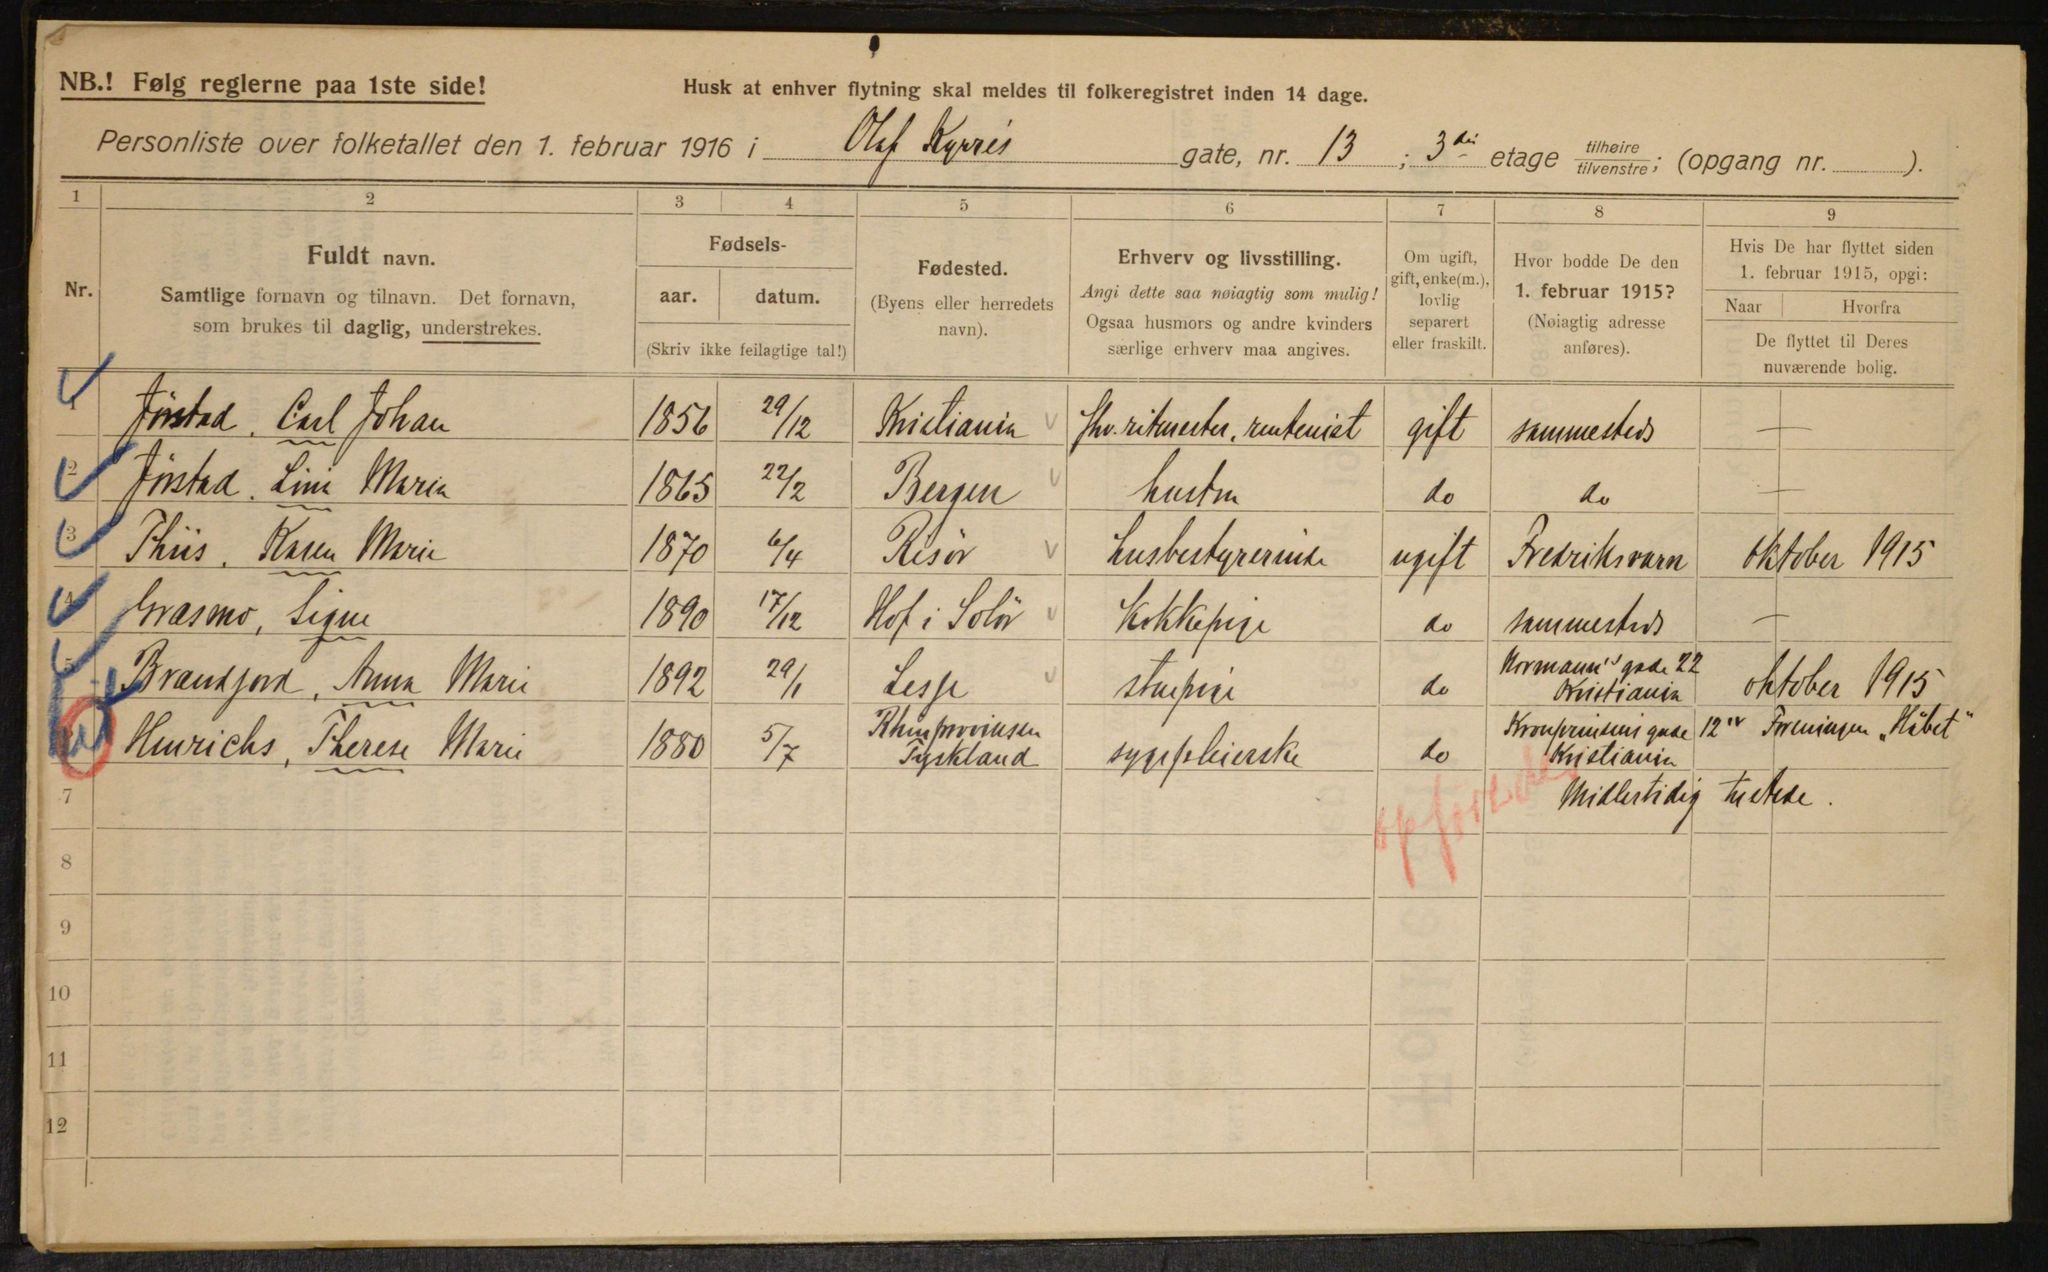 NB.! Følg reglerne paa 1ste side!
Husk at enhver flytning skal meldes til folkeregistret inden 14 dage.
Personliste over folketallet den 1. februar 1916 i Olaf Kyrrés gate, nr. 13 ; 3die etage tilhøire/tilvenstre; (opgang nr. ).
1 2 3 4 5 6 7 8 9
Nr.
Fuldt navn.
Samtlige fornavn og tilnavn. Det fornavn,
som brukes til daglig, understrekes.
Fødsels-
aar. datum.
(Skriv ikke feilagtige tal!)
Fødested.
(Byens eller herredets
navn).
Erhverv og livsstilling.
Angi dette saa nøiagtig som mulig!
Ogsaa husmors og andre kvinders
særlige erhverv maa angives.
Om ugift,
gift, enke(m.),
lovlig
separert
eller fraskilt.
Hvor bodde De den
1. februar 1915?
(Nøiagtig adresse
anføres).
Hvis De har flyttet siden
1. februar 1915, opgi:
Naar Hvorfra
De flyttet til Deres
nuværende bolig.
1 Jörstad, Carl Johan 1856 29/12 Kristiania fhv. ritmester, rentenist gift sammesteds —
2 Jörstad, Lini Maria 1865 22/2 Bergen hustru do do —
3 Thiis, Karen Marie 1870 6/4 Risör husbestyrerinde ugift Fredriksværn oktober 1915
4 Græsmo, Signe 1890 17/12 Hof i Solör kokkepige do sammesteds —
5 Brændjord, Anna Marie 1892 29/1 Lesje stuepige do Normann's gade 22 Kristiania oktober 1915
Hinrichs, Therese Marie 1880 5/7 Rhinprovinsen Tyskland sygepleierske do Kronprinsens gade 12 IV Foreningen „Håbet" Kristiania
7 Midlertidig tilstede.
8
9
10
11
12